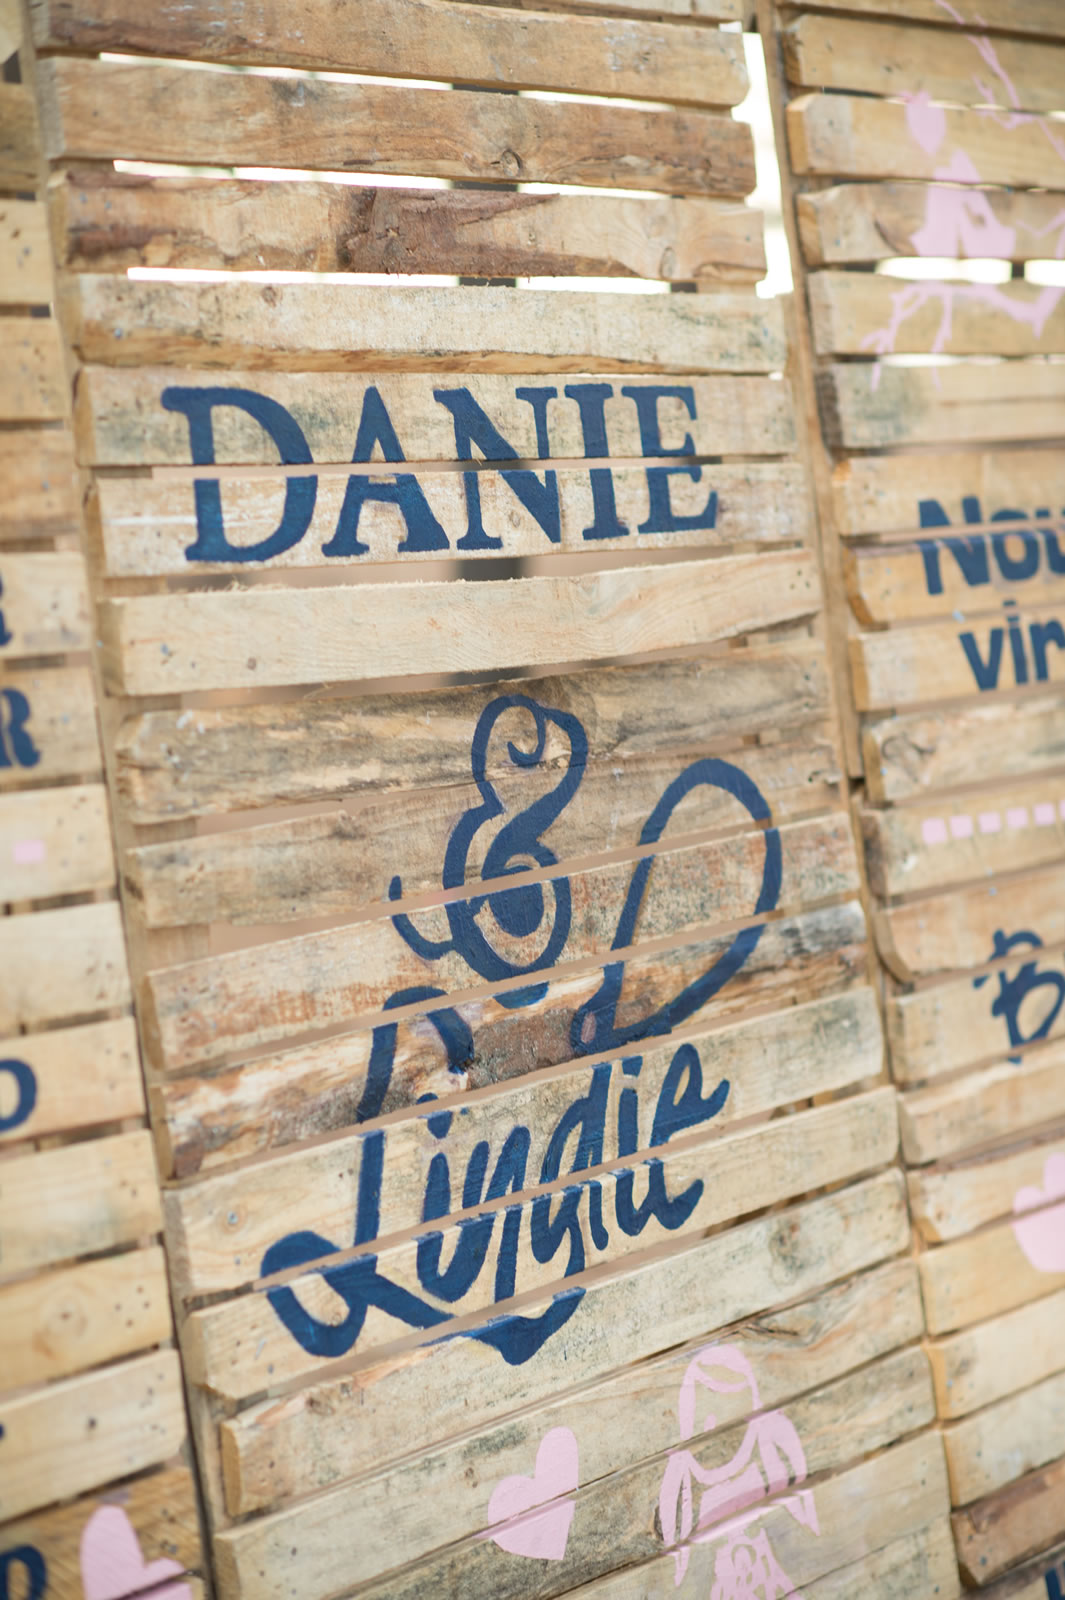 DANIE
&
Lingie
Nou
vir